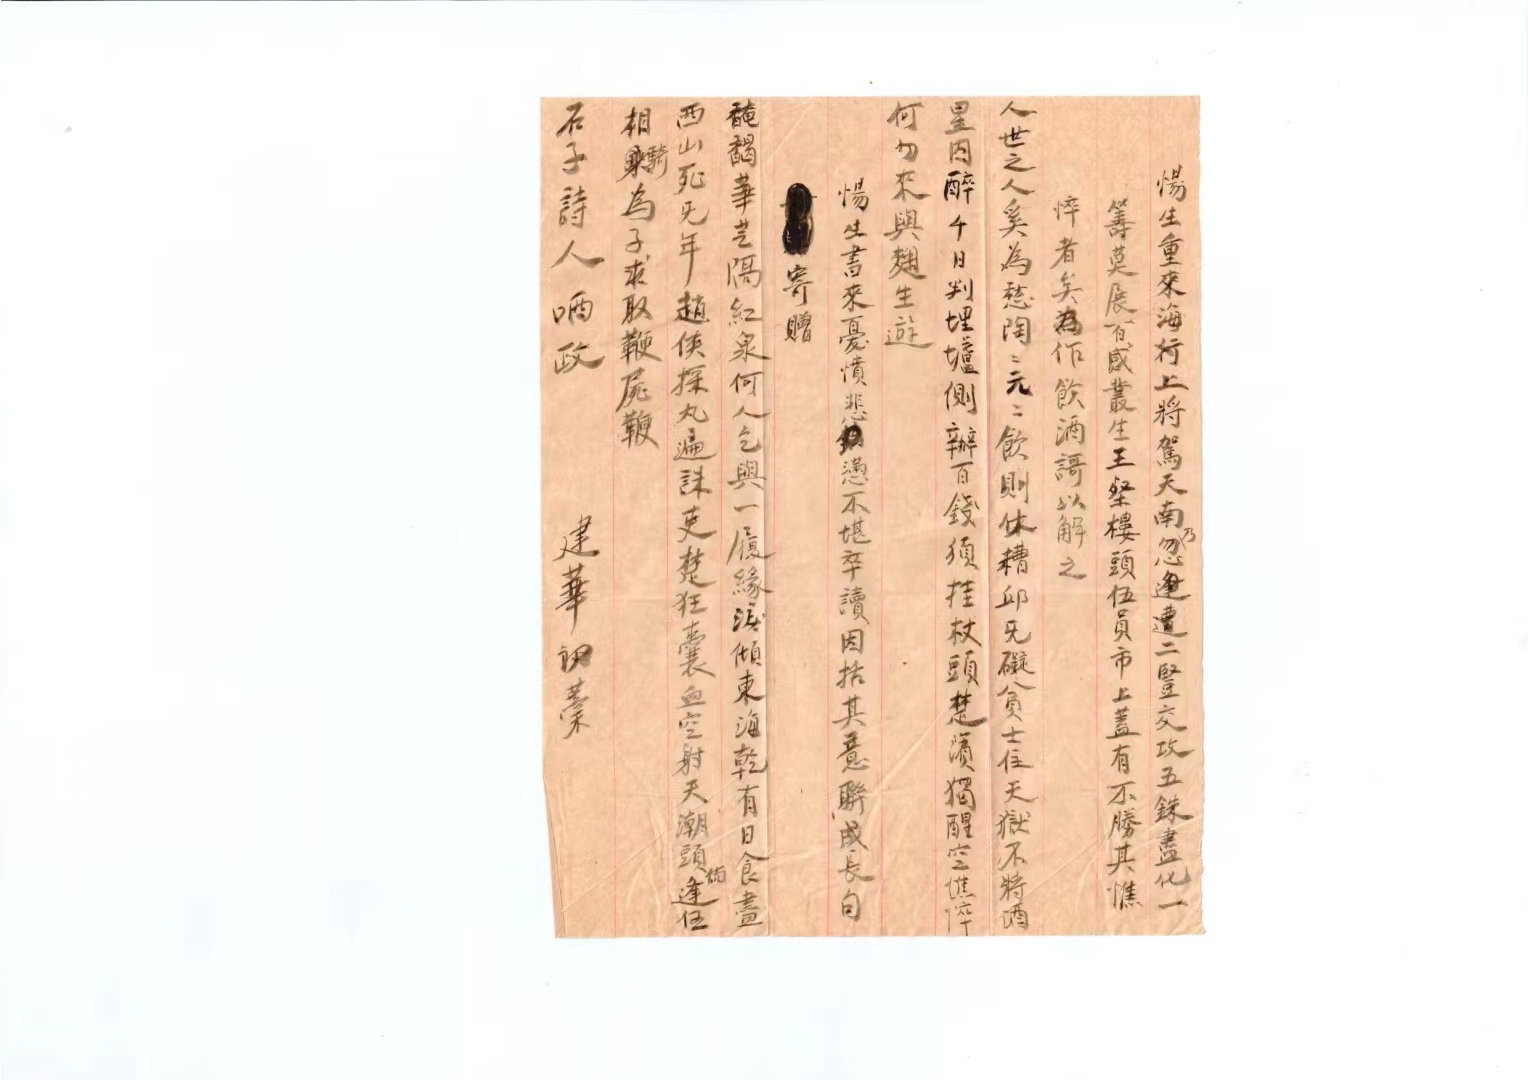 惕生重來海行上將駕天南乃忽遭二豎交攻五銖盡化一
籌莫展百感叢生王粲樓頭伍員市上蓋有不勝其憔
悴者矣為作飲酒謌以解之
人世之人奚為愁陶〻元〻飲則休糟邱旡礙貧士住天獄不將酒
星囚醉千日判埋壚側辦百錢須挂杖頭楚濱獨醒空憔悴
何勿來與麯生遊
惕生書來憂憤悲懣不堪卒讀因括其意聯成長句
寄贈
馣馤華芝隔紅泉何人乞與一履緣淚傾東海乾有日食盡
西山死旡年趙俠探丸遍誅吏楚狂囊血空射天潮頭倘逢伍
相騎為子求取鞭屍鞭
石子詩人哂政
建華初藁